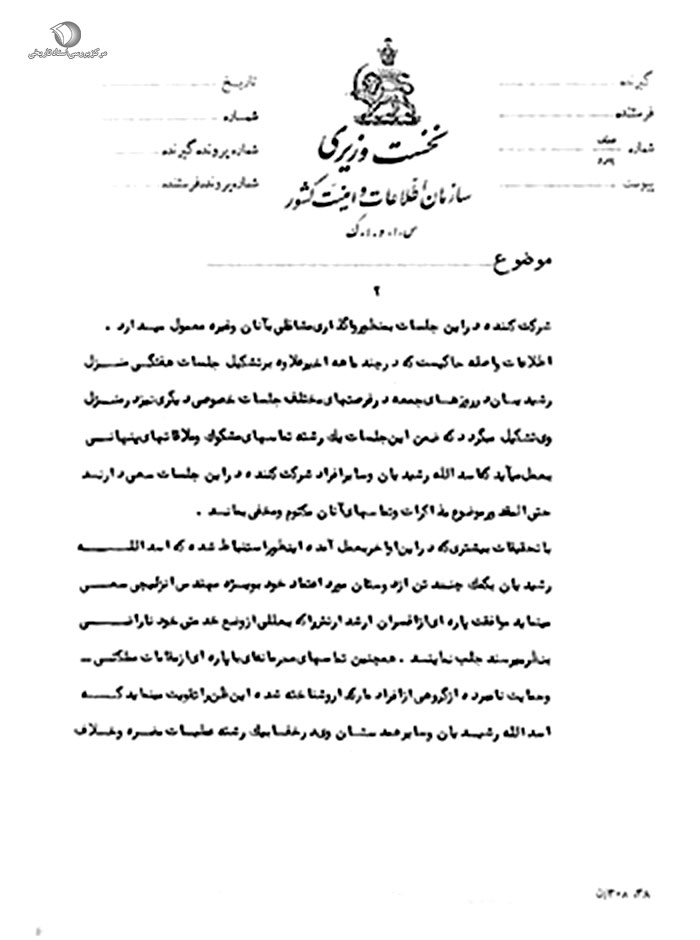 مرکز بررسی اسناد تاریخی
گیرنده
فرستنده
شماره عطف پیرو
پیوست
نخست وزیری
سازمان اطلاعات و امنیت کشور
س.ا.و.ا.ک
تاریخ
شماره
شماره پرونده گیرنده
شماره پرونده فرستنده
موضوع
۲
شرکت کننده در این جلسات بمنظور واگذاری مشاغلی بآنان وغیره معمول میدارد .
اطلاعات واصله حاکیست که در چند ماهه اخیر علاوه بر تشکیل جلسات هفتگی منزل
رشیدیان در روزهای جمعه در فرصتهای مختلف جلسات خصوصی دیگری نیز در منزل
وی تشکیل میگردد که ضمن این جلسات یك رشته تماسهای مشکوك وملاقاتهای پنهانی
بعمل میآید که اسد الله رشیدیان وسایر افراد شرکت کننده در این جلسات سعی دارند
حتی المقدور موضوع مذاکرات وتماسهای آنان مکتوم ومخفی بماند .
با تحقیقات بیشتری که در این اواخر بعمل آمده اینطور استنباط شده که اسد الله
رشیدیان بکمك چند تن از دوستان مورد اعتماد خود بویژه مهندس انزلیچی سعی
مینماید موافقت پاره ای از افسران ارشد ارتش را که بعللی از وضع خدمتی خود ناراضی
بنظر میرسند جلب نمایند . همچنین تماسهای محرمانه‌ای با پاره ای از مقامات مملکتی ـ
وحمایت نامبرده از گروهی از افراد مارکدار و شناخته شده این ظن را تقویت مینماید که
اسد الله رشیدیان وسایر همدستان وی در خفا بیك رشته عملیات مضره وخلاف
۳۰۸-۳۸ن